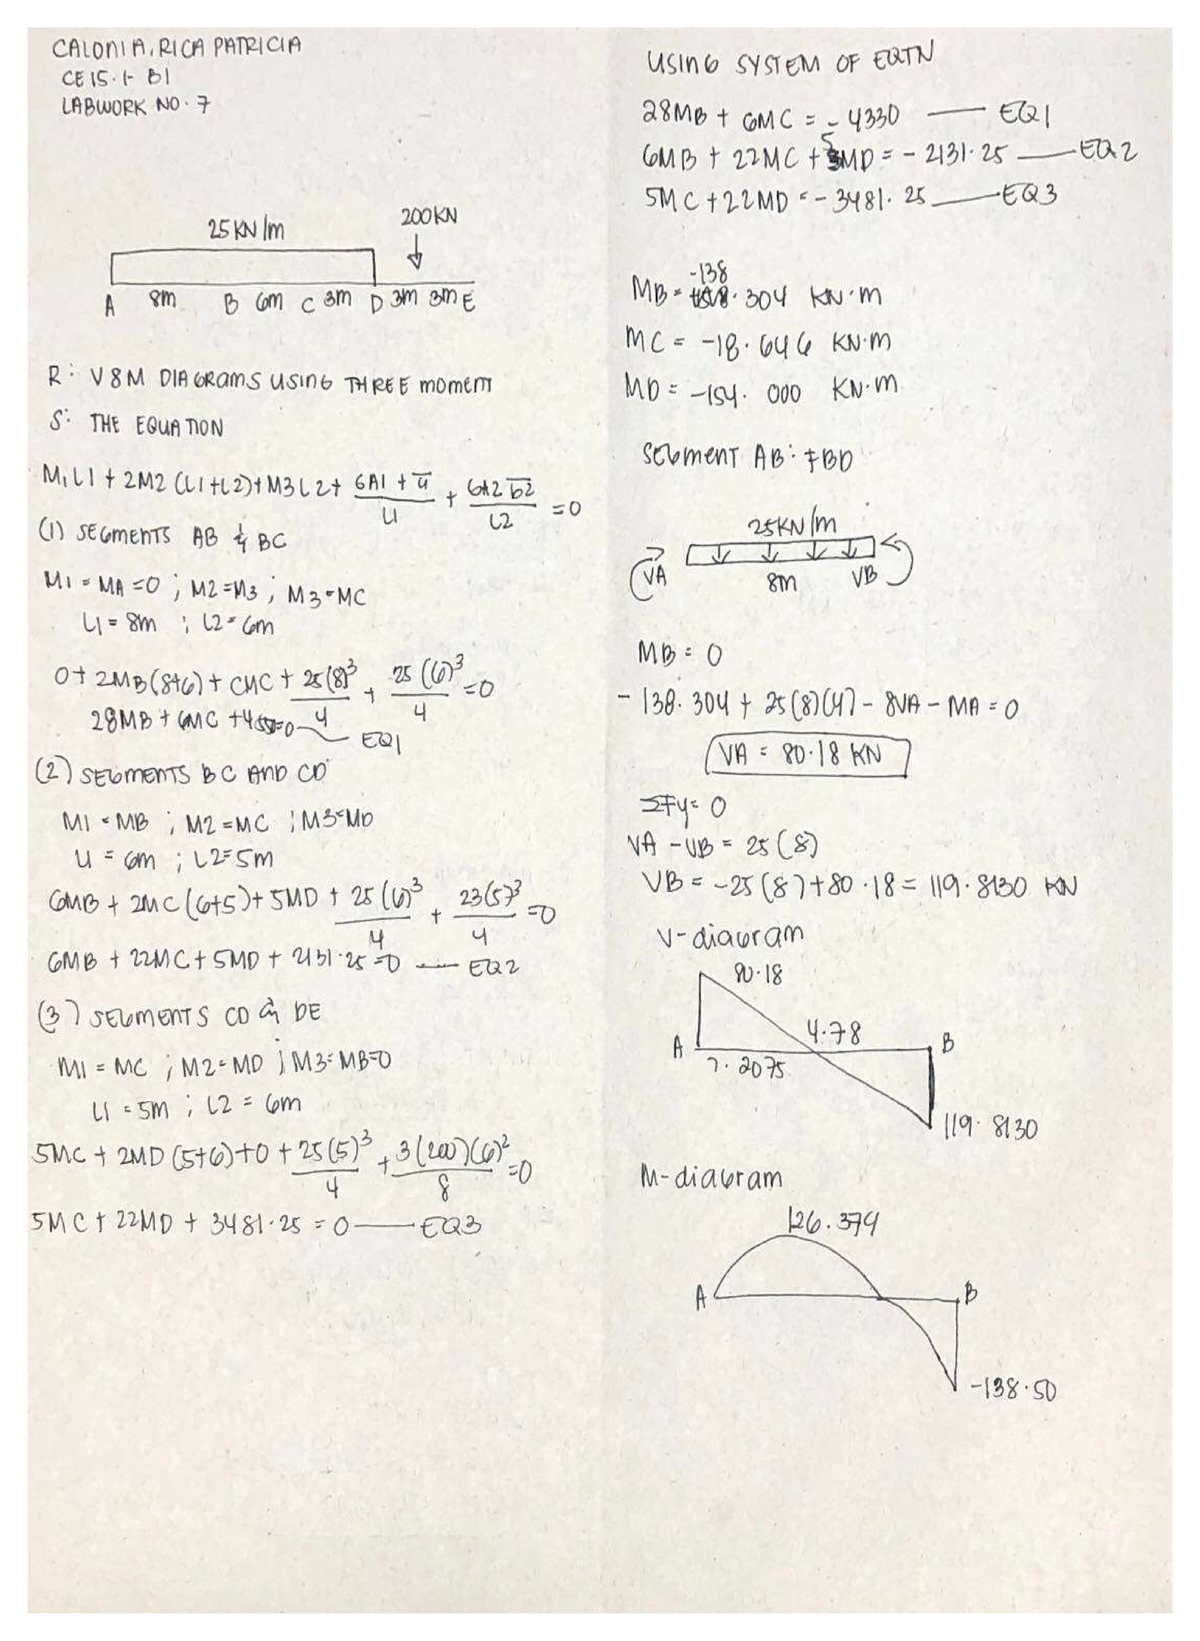 CALONIA, RICA PATRICIA
CE 15.1- B1
LABWORK NO. 7
25 KN/m
200KN
A 8m B 6m C 3m D 3m 3m E
R: V & M DIAGRAMS USING THREE moment
S: THE EQUATION
M1L1 + 2M2 (L1+L2)+M3L2+ 6A1 + a̅ / L1 + 6A2 b̅2 / L2 = 0
(1) SEGMENTS AB & BC
M1 = MA = 0 ; M2 = M3 ; M3 = MC
L1 = 8m ; L2 = 6m
0 + 2MB(8+6) + CMC + 25(8)³/4 + 25(6)³/4 = 0
28MB + 6MC + =0 EQ1
(2) SEGMENTS BC AND CD
M1 = MB ; M2 = MC ; M3 = MD
L1 = 6m ; L2 = 5m
6MB + 2MC (6+5) + 5MD + 25(6)³/4 + 23(5)³/4 = 0
6MB + 22MC + 5MD + 2131.25 = 0 — EQ2
(3) SEGMENTS CD & DE
M1 = MC ; M2 = MD ; M3 = MB = 0
L1 = 5m ; L2 = 6m
5MC + 2MD (5+6) + 0 + 25(5)³/4 + 3(200)(6)²/8 = 0
5MC + 22MD + 3481.25 = 0 — EQ3
USING SYSTEM OF EQTN
28MB + 6MC = - 4330 — EQ1
6MB + 22MC + 5MD = - 2131.25 — EQ2
5MC + 22MD = - 3481.25 — EQ3
MB = -138.304 KN·m
MC = -18.646 KN·m
MD = -154.000 KN·m
SEGMENT AB: FBD
25KN/m
VA 8m VB
MB = 0
- 138.304 + 25(8)(4) - 8VA - MA = 0
VA = 80.18 KN
ΣFy = 0
VA - VB = 25(8)
VB = -25(8) + 80.18 = 119.8130 KN
V-diagram
80.18
4.78
A B
7.2075
119.8130
M-diagram
126.379
A B
-138.50